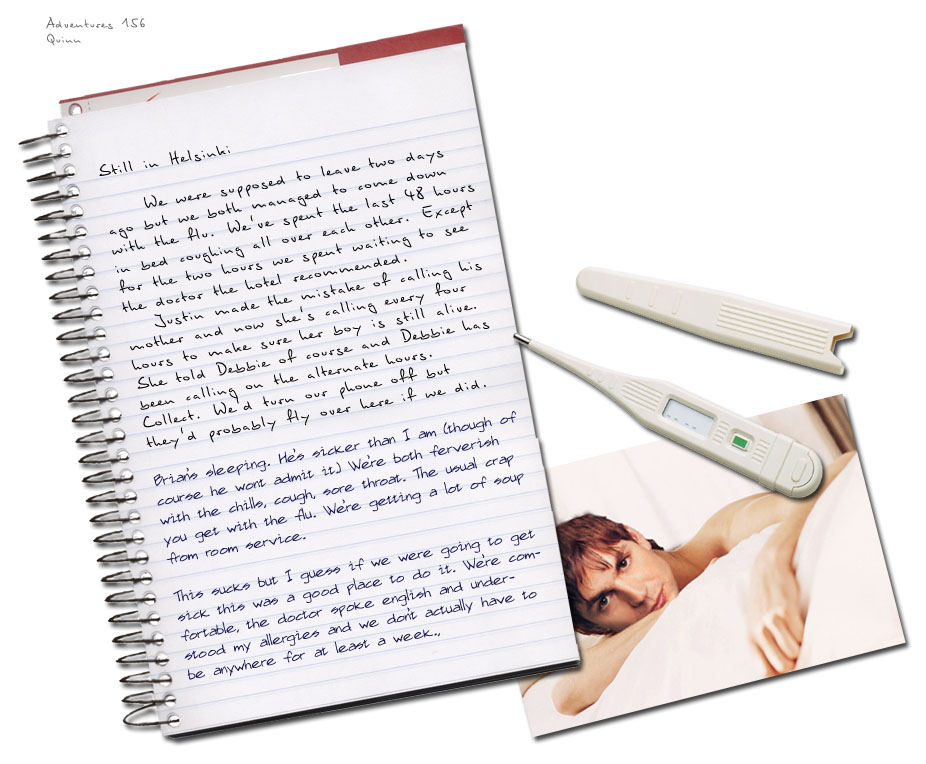 Adventures 156
Quinn
Still in Helsinki
We were supposed to leave two days
ago but we both managed to come down
with the flu. We've spent the last 48 hours
in bed coughing all over each other. Except
for the two hours we spent waiting to see
the doctor the hotel recommended.
Justin made the mistake of calling his
mother and now she's calling every four
hours to make sure her boy is still alive.
She told Debbie of course and Debbie has
been calling on the alternate hours.
Collect. We'd turn our phone off but
they'd probably fly over here if we did.
Brian's sleeping. He's sicker than I am (though of
course he wont admit it.) We're both ferverish
with the chills, cough, sore throat. The usual crap
you get with the flu. We're getting a lot of soup
from room service.
This sucks but I guess if we were going to get
sick this was a good place to do it. We're com-
fortable, the doctor spoke english and under-
stood my allergies and we don't actually have to
be anywhere for at least a week..